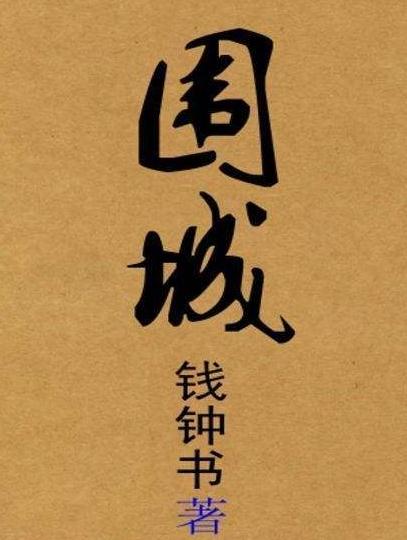 围城
钱钟书著